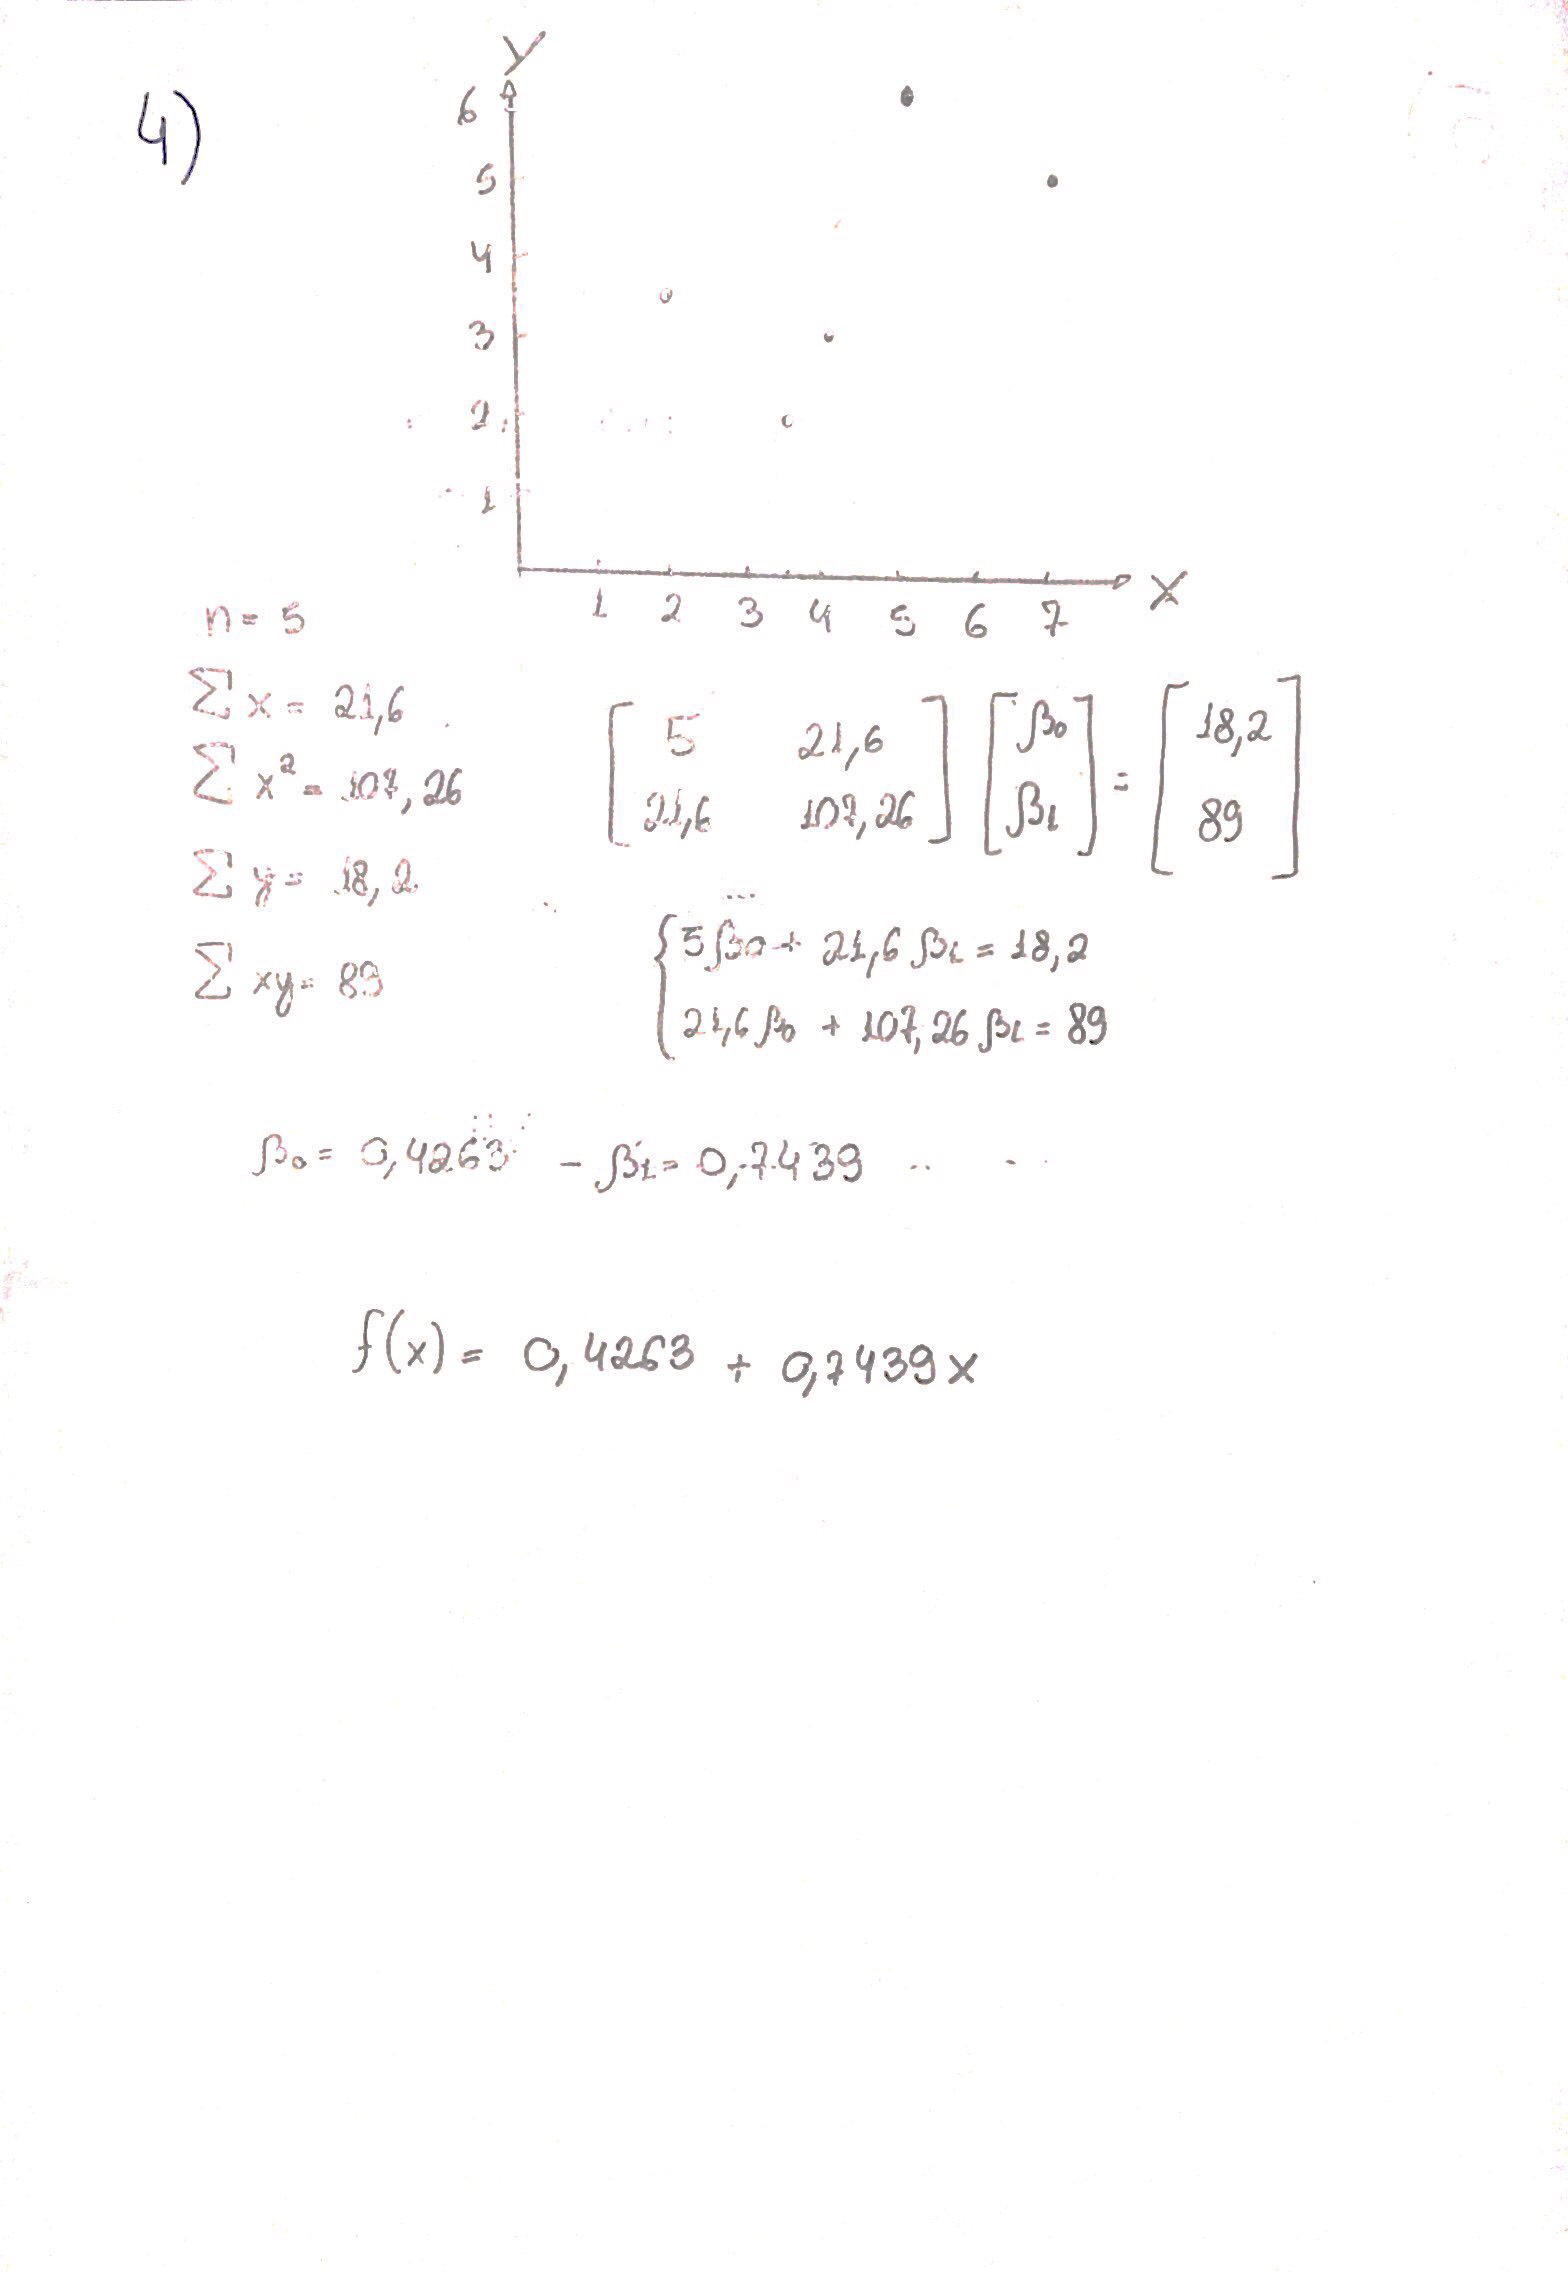 4)
Y
6
5
4
3
2
1
1 2 3 4 5 6 7 X
n = 5
∑ x = 21,6
∑ x² = 107,26
∑ y = 18,2
∑ xy = 89
[ 5 21,6 ] [ β₀ ] = [ 18,2 ]
[ 21,6 107,26 ] [ β₁ ] [ 89 ]
{ 5β₀ + 21,6 β₁ = 18,2
21,6 β₀ + 107,26 β₁ = 89
β₀ = 0,4263 - β₁ = 0,7439
f(x) = 0,4263 + 0,7439x